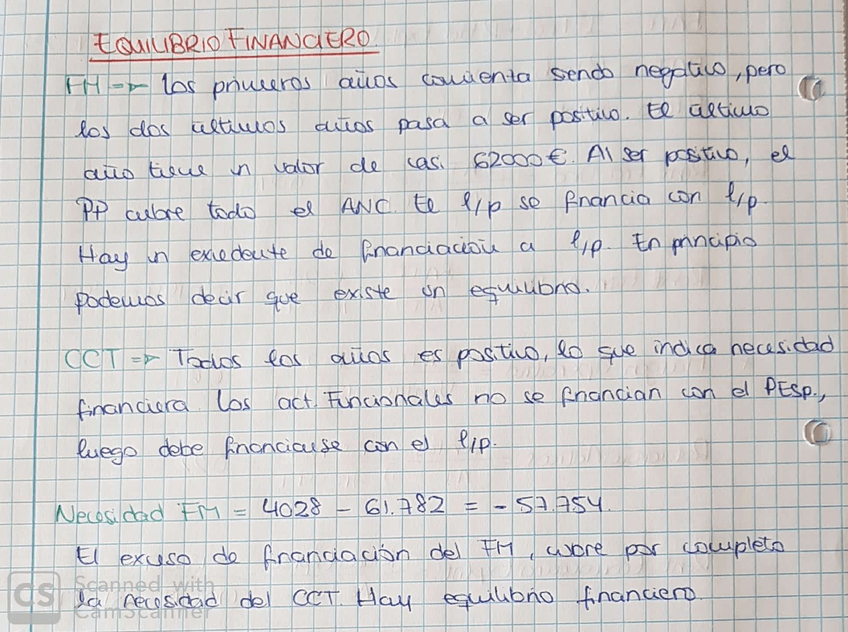 EQUILIBRIO FINANCIERO
FM → Los primeros años comienza sendo negativo, pero
los dos ultimos años pasa a ser positivo. El ultimo
año tiene un valor de casi 62000 €. Al ser positivo, el
PP cubre todo el ANC. El l/p se financia con l/p.
Hay un exedente de financiación a l/p. En principio
podemos decir que existe un equilibrio.
CCT → Todos los años es positivo, lo que indica necesidad
financiera. Los act. Funcionales no se financian con el PEsp.,
luego debe financiarse con el l/p.
Necesidad FM = 4028 - 61.782 = - 57.754.
El exceso de financiación del FM, cubre por completo
la necesidad del CCT. Hay equilibrio financiero.
CS Scanned with
CamScanner